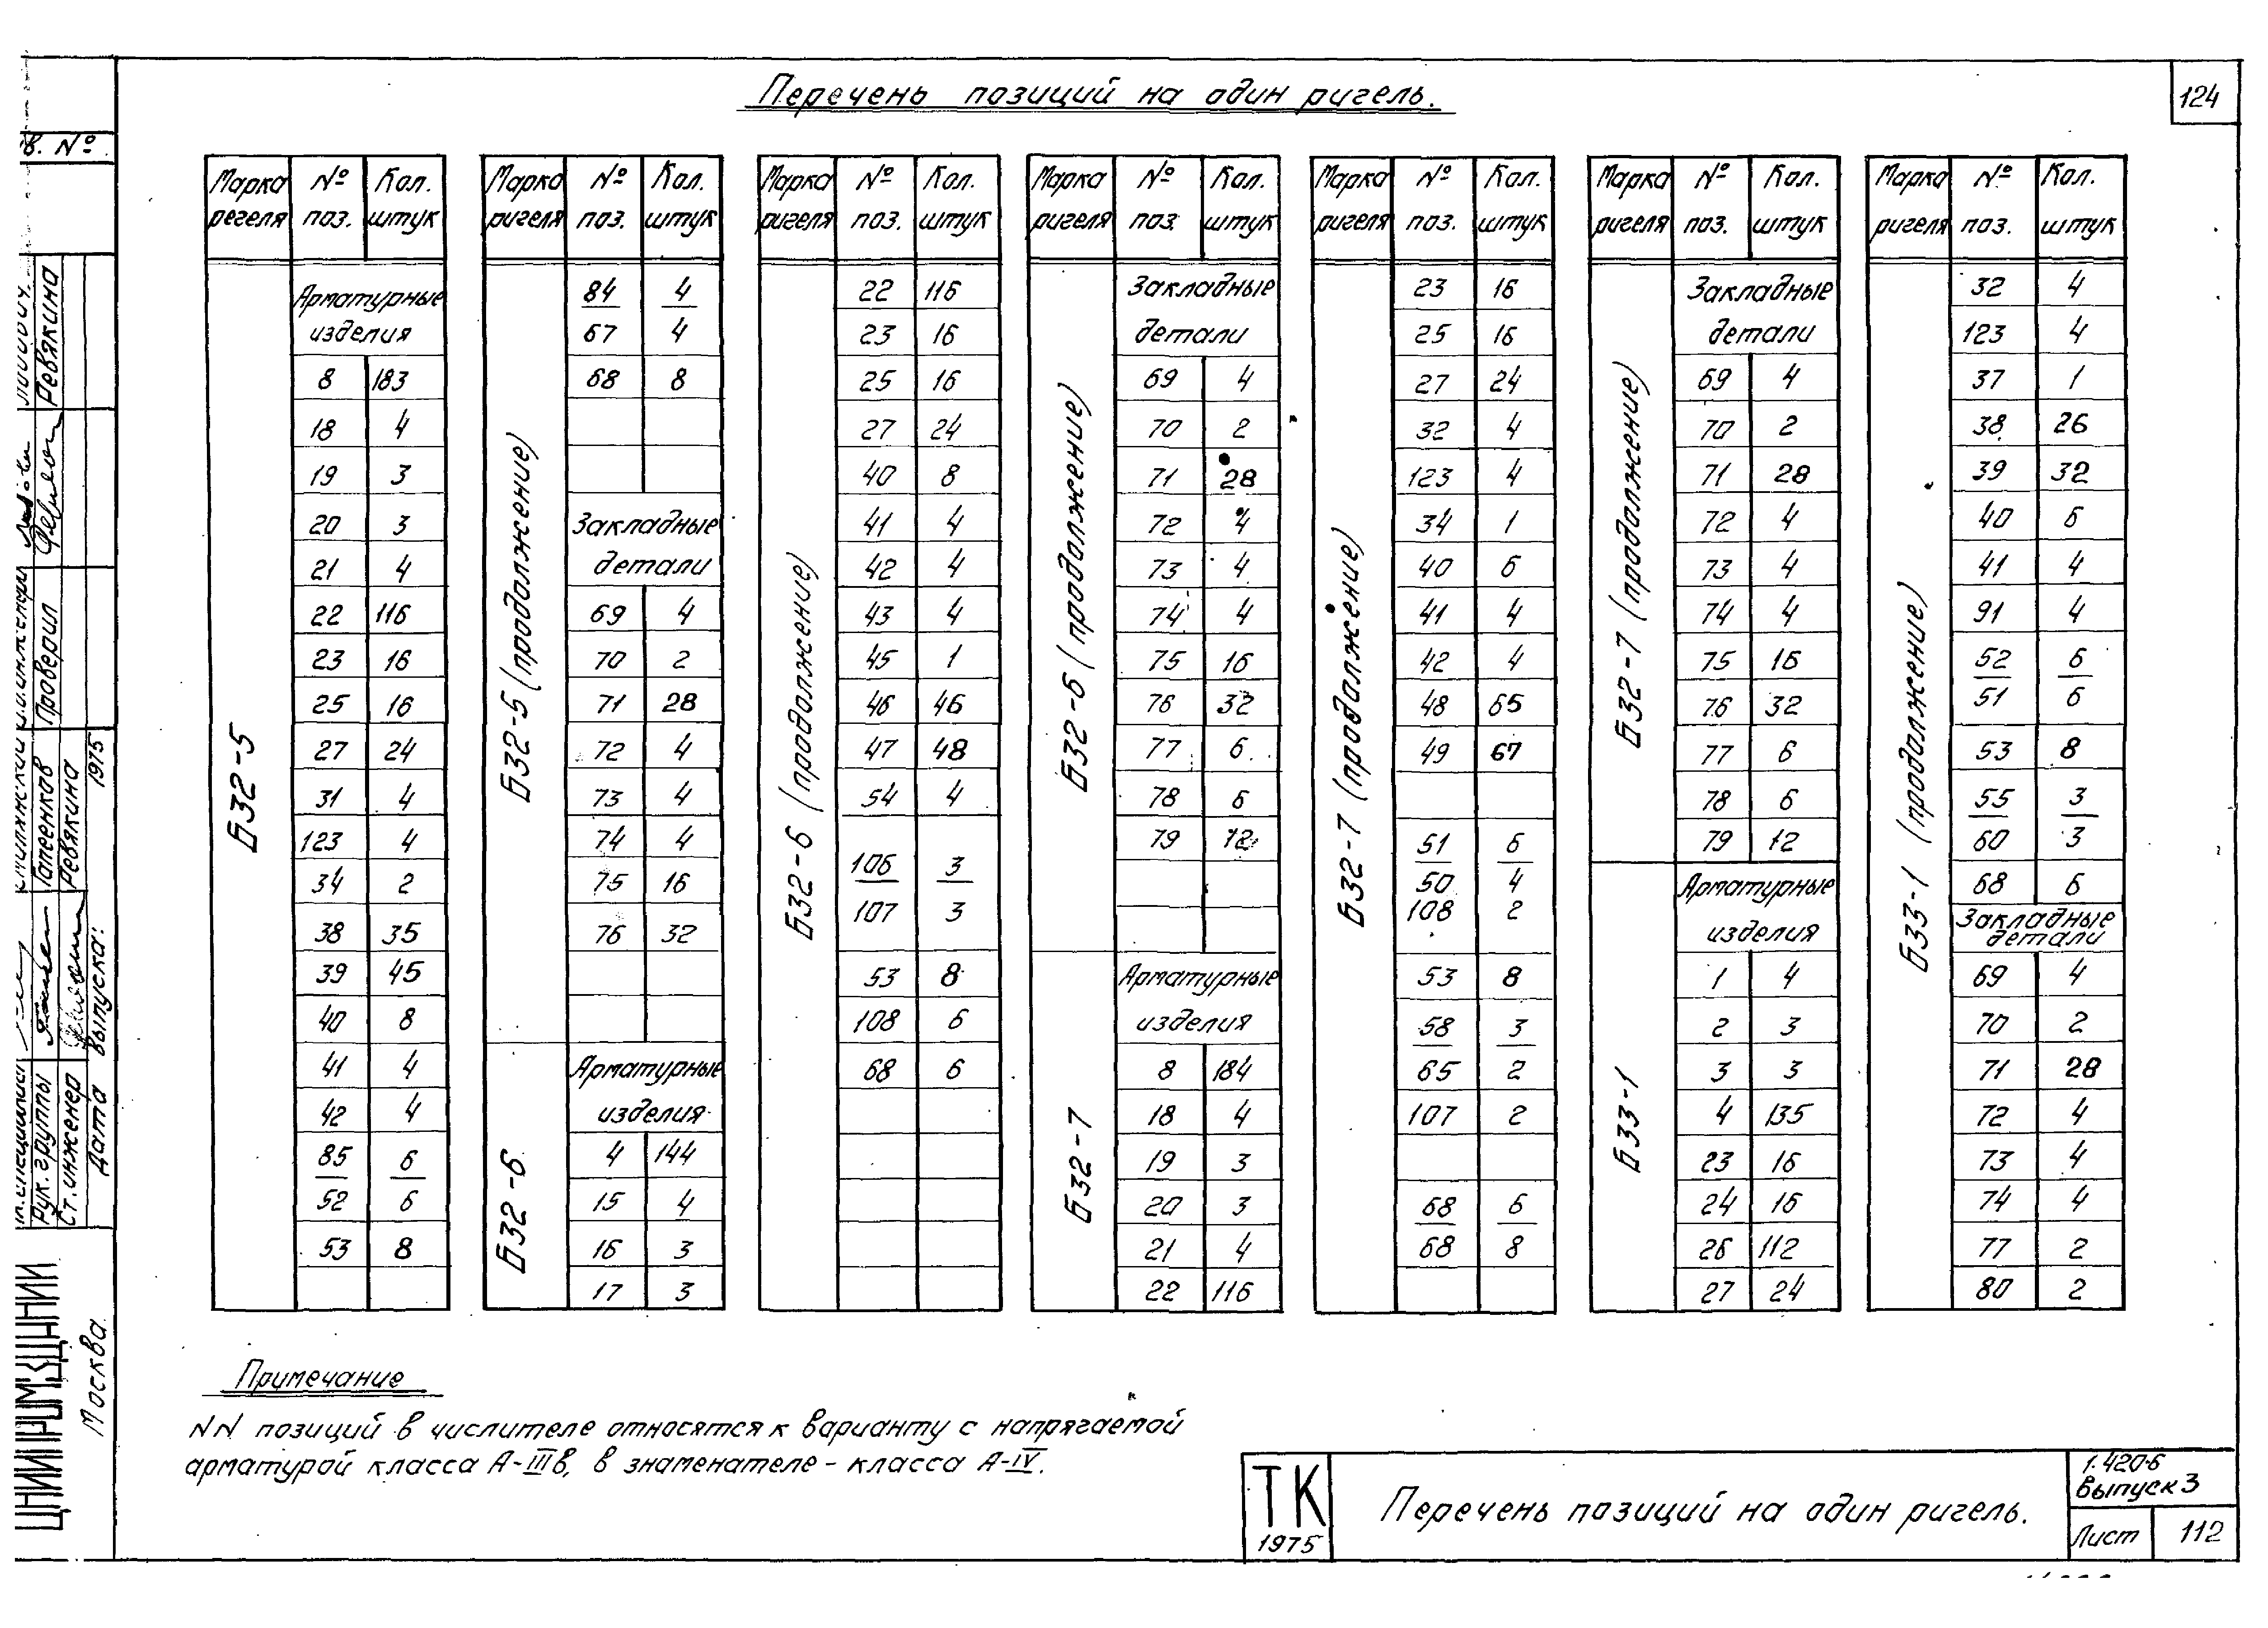 Перечень позиций на один ригель.
124
в. №
Марка регеля № поз. Кол. штук
Б32-5
Арматурные
изделия
8 183
18 4
19 3
20 3
21 4
22 116
23 16
25 16
27 24
31 4
123 4
34 2
38 35
39 45
40 8
41 4
42 4
85 6
52 6
53 8
Марка ригеля № поз. Кол. штук
Б32-5 (продолжение)
84 4
67 4
68 8
Закладные
детали
69 4
70 2
71 28
72 4
73 4
74 4
75 16
76 32
Б32-6
Арматурные
изделия
4 144
15 4
16 3
17 3
Марка ригеля № поз. Кол. штук
Б32-6 (продолжение)
22 116
23 16
25 16
27 24
40 8
41 4
42 4
43 4
45 1
46 46
47 48
54 4
106 3
107 3
53 8
108 6
68 6
Марка ригеля № поз. Кол. штук
Б32-6 (продолжение)
Закладные
детали
69 4
70 2
71 28
72 4
73 4
74 4
75 16
76 32
77 6
78 6
79 12
Б32-7
Арматурные
изделия
8 184
18 4
19 3
20 3
21 4
22 116
Марка ригеля № поз. Кол. штук
Б32-7 (продолжение)
23 16
25 16
27 24
32 4
123 4
34 1
40 6
41 4
42 4
48 65
49 67
51 6
50 4
108 2
53 8
58 3
65 2
107 2
68 6
68 8
Марка ригеля № поз. Кол. штук
Б32-7 (продолжение)
Закладные
детали
69 4
70 2
71 28
72 4
73 4
74 4
75 16
76 32
77 6
78 6
79 12
Б33-1
Арматурные
изделия
1 4
2 3
3 3
4 135
23 16
24 16
26 112
27 24
Марка ригеля № поз. Кол. штук
Б33-1 (продолжение)
32 4
123 4
37 1
38 26
39 32
40 6
41 4
91 4
52 6
51 6
53 8
55 3
60 3
68 6
Закладные
детали
69 4
70 2
71 28
72 4
73 4
74 4
77 2
80 2
Примечание
NN позиций в числителе относятся к варианту с напрягаемой
арматурой класса А-IIIв, в знаменателе - класса А-IV.
ТК
1975
Перечень позиций на один ригель.
1.420-6
Выпуск 3
Лист 112
Рук. группы Гапеенков Проверил Ревякина
Ст. инженер Ревякина
Дата выпуска: 1975
ЦНИИПРОМЗДАНИЙ
Москва